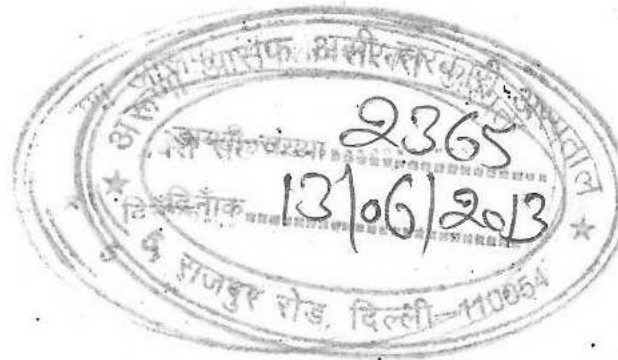 अरूणा आसफ अली सरकारी अस्पताल
डायरी संख्या 2365
दिनाँक 13/06/2013
5, राजपुर रोड, दिल्ली-110054